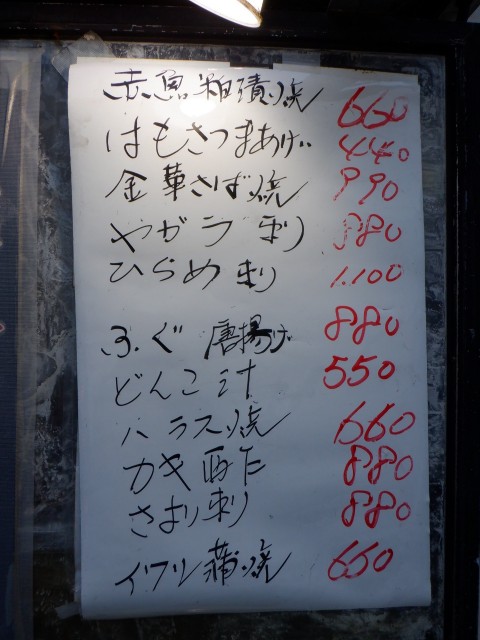 赤魚粕漬焼 660
はもさつまあげ 440
金華さば焼 990
ヤガラ刺 880
ひらめ刺 1.100
ふぐ唐揚げ 880
どんこ汁 550
ハラス焼 660
カキ酢 880
さより刺 880
イワシ蒲焼 650